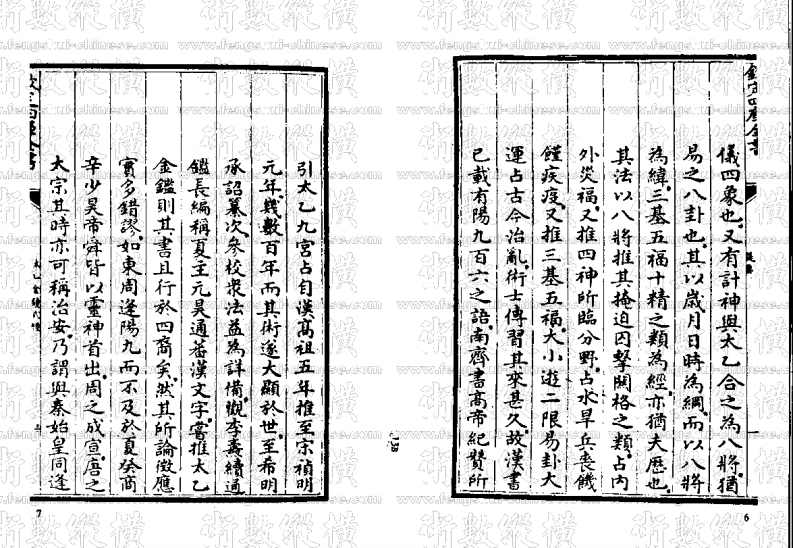 欽定四庫全書
儀四象也又有計神與太乙合之為八將猶
易之八卦也其以歲月日時為綱而以八將
為緯三基五福十精之類為經亦猶夫歷也
其法以八將推其掩迫囚擊關格之類占內
外災福又推四神所臨分野占水旱兵喪饑
饉疾疫又推三基五福大小遊二限易卦大
運占古今治亂術士傳習其來甚久故漢書
已載有陽九百六之語南齊書高帝紀贊所
6
引太乙九宮占自漢高祖五年推至宋禎明
元年幾數百年而其術遂大顯於世至希明
承詔纂次參校衆法益為詳備觀李燾續通
鑑長編稱夏主元昊通蕃漢文字嘗推太乙
金鑑則其書且行於四裔矣然其所論徵應
實多錯謬如東周逢陽九而不及於夏癸商
辛少昊帝舜皆以靈神首出周之成宣唐之
太宗其時亦可稱治安乃謂與秦始皇同逢
7
術數縱橫
www.fengs.ui-chinese.com